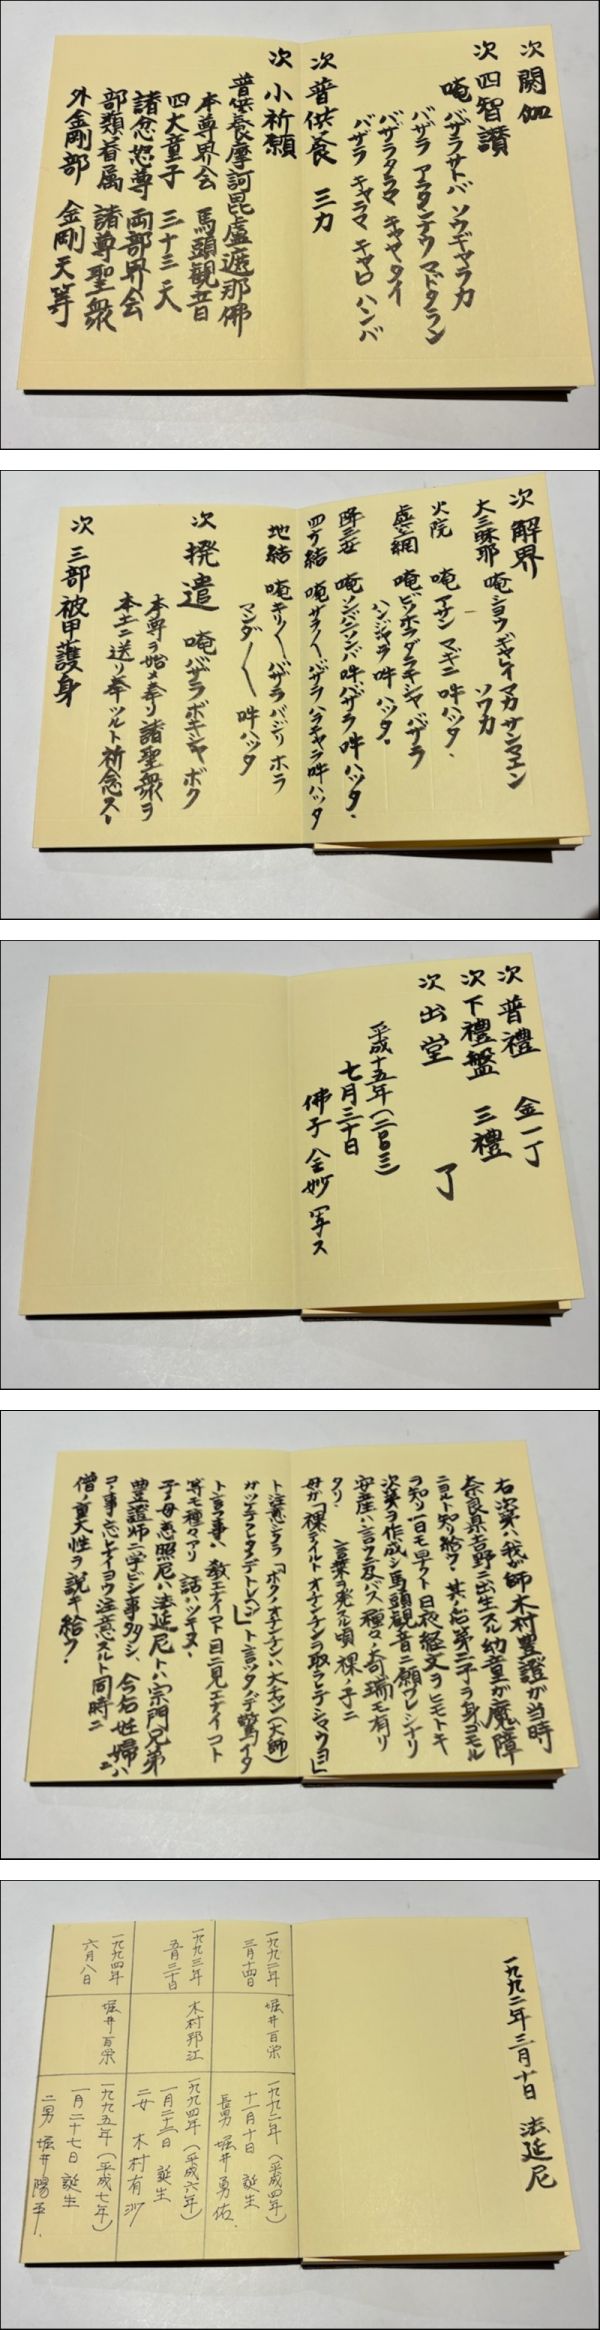 次 閼伽
次 四智讃
唵 バザラサトバ ソウギャラカ
バザラ アラタンナウ マドタラン
バザラタラマ キャヤタイ
バザラ キャラマ キャロ ハンバ
次 普供養 三力
次 小祈願
普供養摩訶毘盧遮那佛
本尊界会 馬頭観音
四大童子 三十三天
諸忿怒尊 両部界会
部類眷属 諸尊聖衆
外金剛部 金剛天等
次 解界
大三昧耶 唵 ショウギャレイ マカ サンマエン
ソワカ
火院 唵 アサン マギニ 吽 ハッタ、
虚空網 唵 ビソホラダラキシャ バザラ
ハンジャラ 吽 ハッタ、
降三世 唵 ソンバニソンバ 吽 バザラ 吽 ハッタ、
四方結 唵 サラ〱 バザラ ハラキャラ 吽 ハッタ
地結 唵 キリ〱 バザラ バジリ ホラ
マンダ〱 吽 ハッタ
次 撥遣 唵 バザラ ボキシャ ボク
本尊ヲ始メ奉リ諸聖衆ヲ
本土ニ送リ奉ツルト祈念ス、
次 三部被甲護身
次 普禮 金一丁
次 下禮盤 三禮
次 出堂 了
平成十五年(二〇〇三)
七月三十日
佛子 全妙 写ス
右次第ハ我が師木村豊證が当時
奈良県吉野ニ出生スル幼童が魔障
ニヨルト知リ給ウ、其ノ后第二子ヲ身ゴモル
ヲ知リ一日モ早クト日夜経文ヲヒモトキ
次第ヲ作成シ馬頭観音ニ願ブレシナリ
安産ハ言ウニ及バズ種々ノ奇瑞モ有リ
タリ、 言葉ヲ発スル頃裸ノ子ニ
母が「裸デイルトオチンチンヲ取ラレテシマウヨ」
ト注意シタラ「ボクノオチンチンハ大チャン(大師)
ガツテヲフタンデトレナイ」ト言ッタノデ驚イタ
ト言ウ事ハ 教エナイコト目ニ見エナイコト
等モ種々アリ 話ハツキヌ、
子ノ母恵照尼ハ法延尼トハ宗門兄弟
豊證師ニ学ビシ事多シ、今后妊婦ニハ
コノ事忘レナイヨウ注意スルト同時ニ
僧ノ重大性ヲ説キ給ウ、
一九九二年三月十日 法延尼
一九九二年
三月十四日
堀井百栄
一九九二年(平成四年)
十一月十日 誕生
長男 堀井勇佑
一九九三年
五月三十日
木村邦江
一九九四年(平成六年)
一月二十三日 誕生
二女 木村有沙
一九九四年
六月八日
堀井百栄
一九九五年(平成七年)
一月二十七日 誕生
二男 堀井陽平、